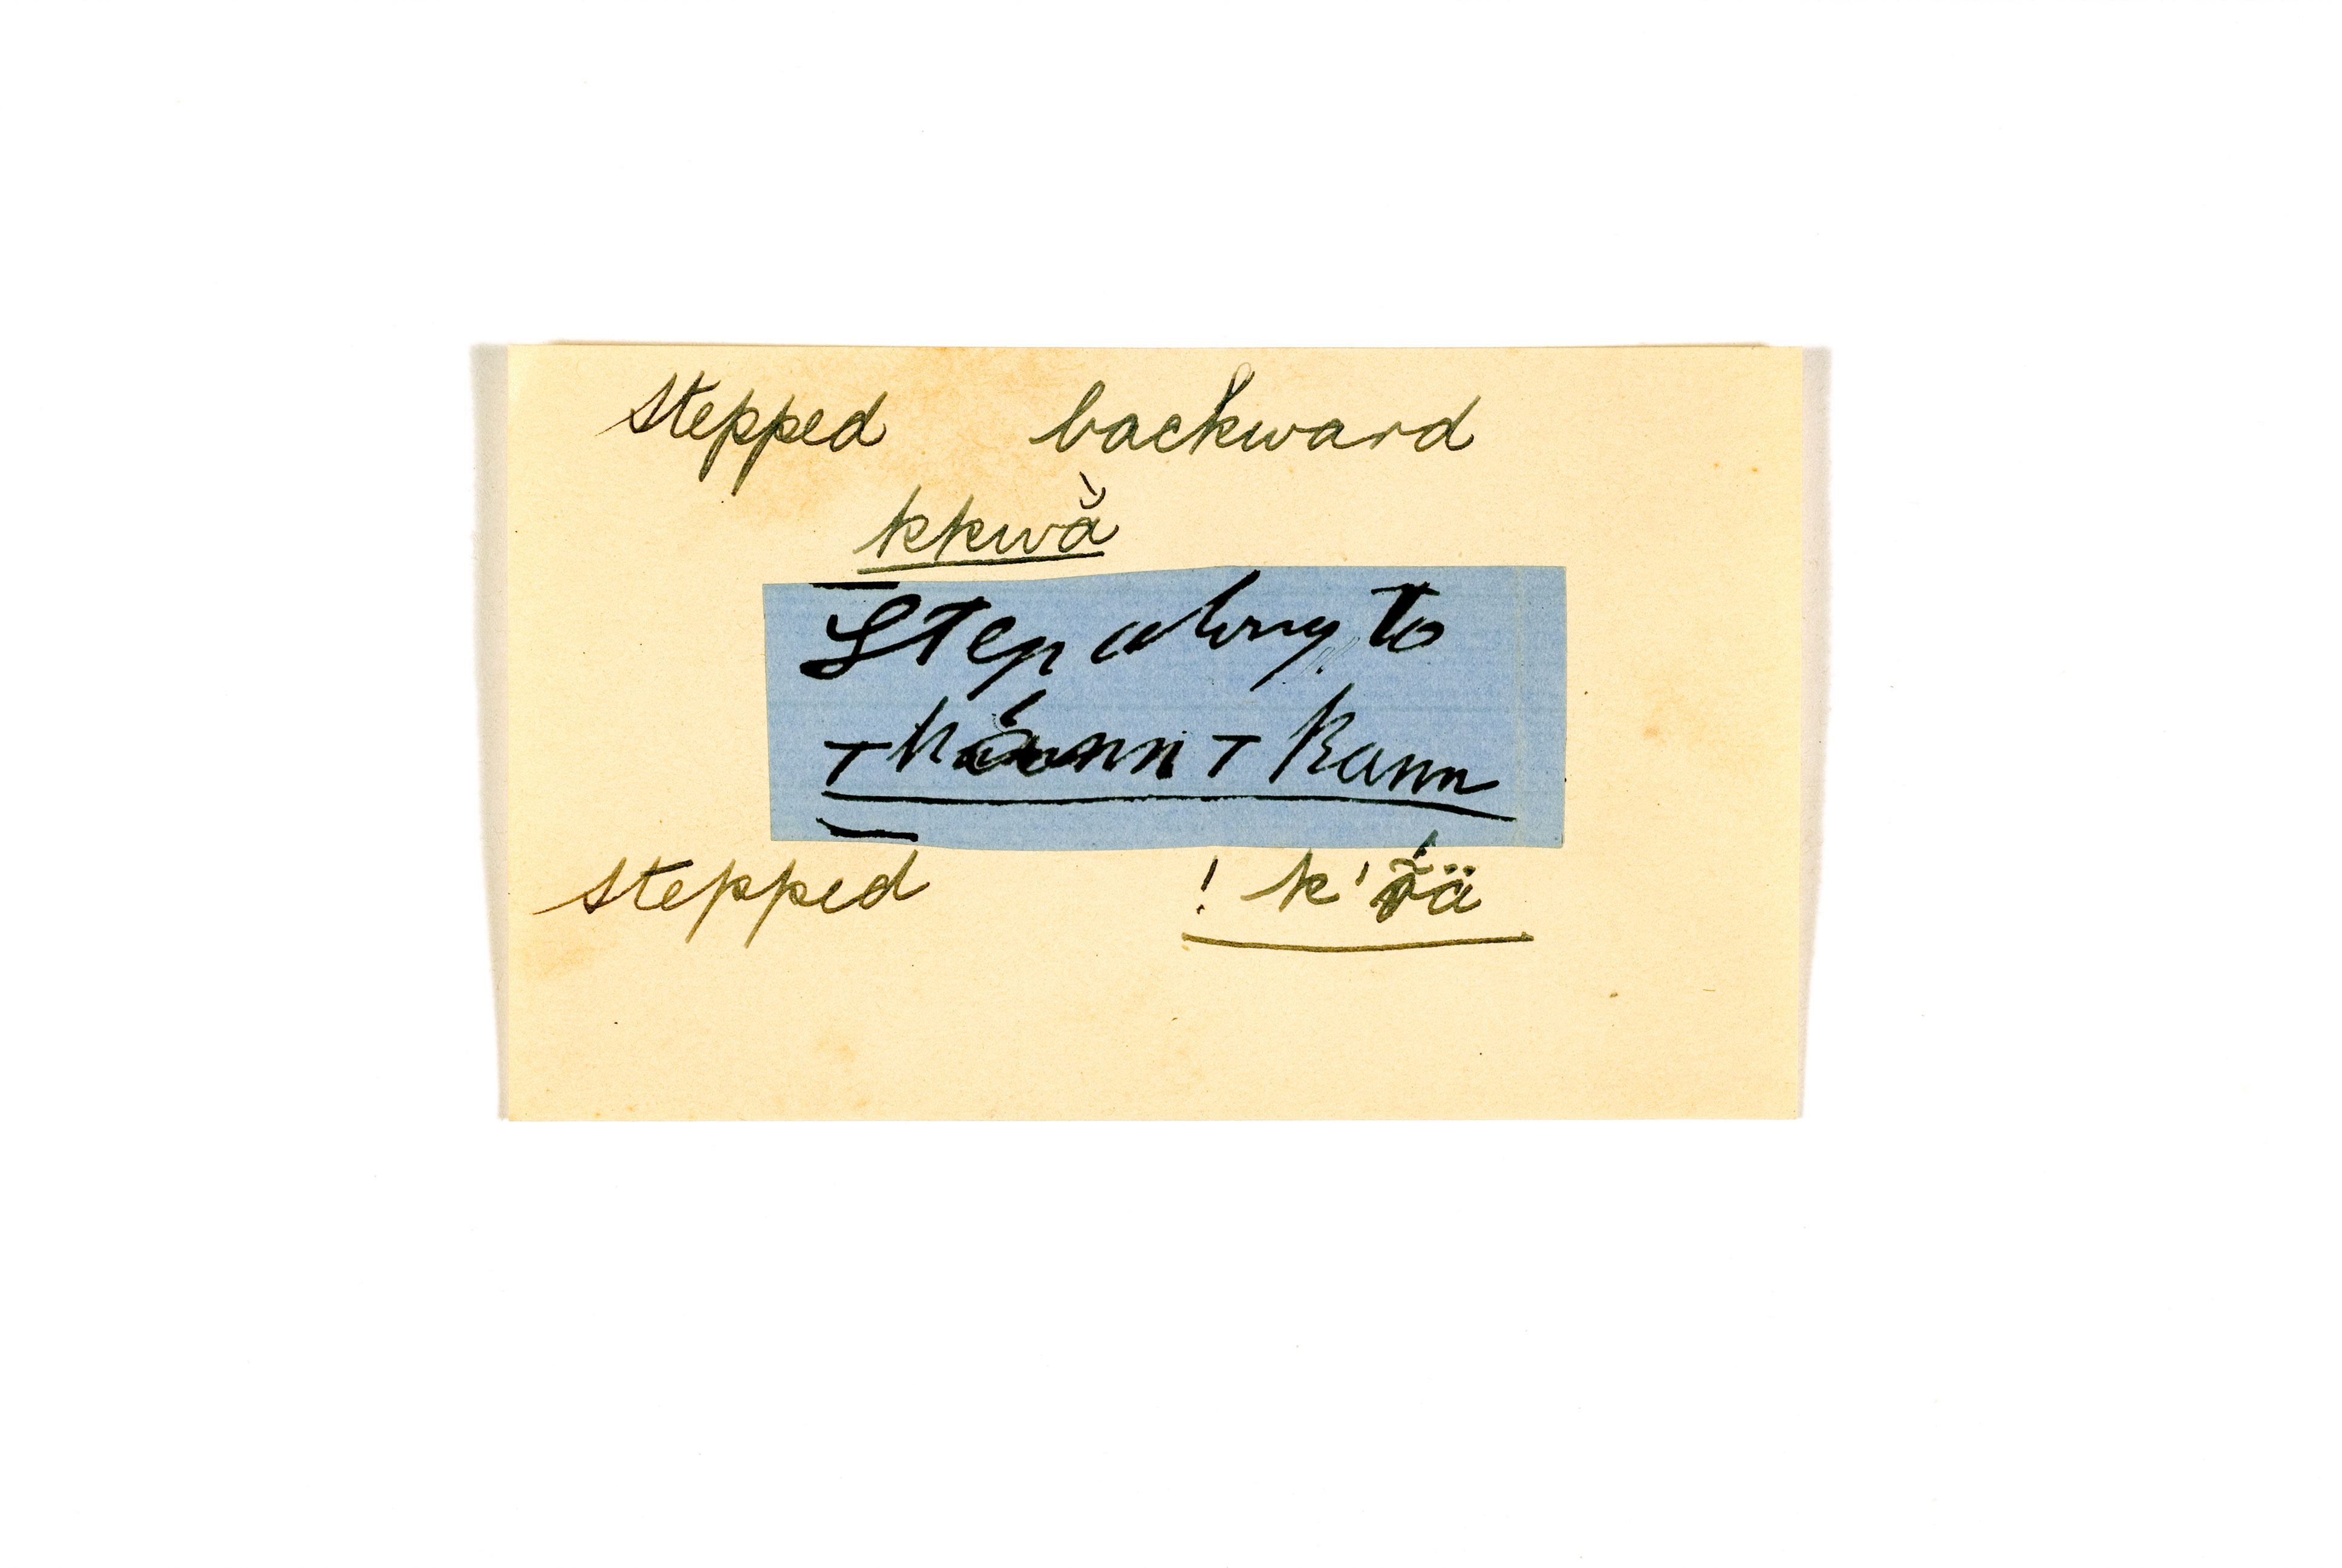 stepped backward
kkwằ
Step along to
+ kánn + Kann
stepped ! k'r̃ä